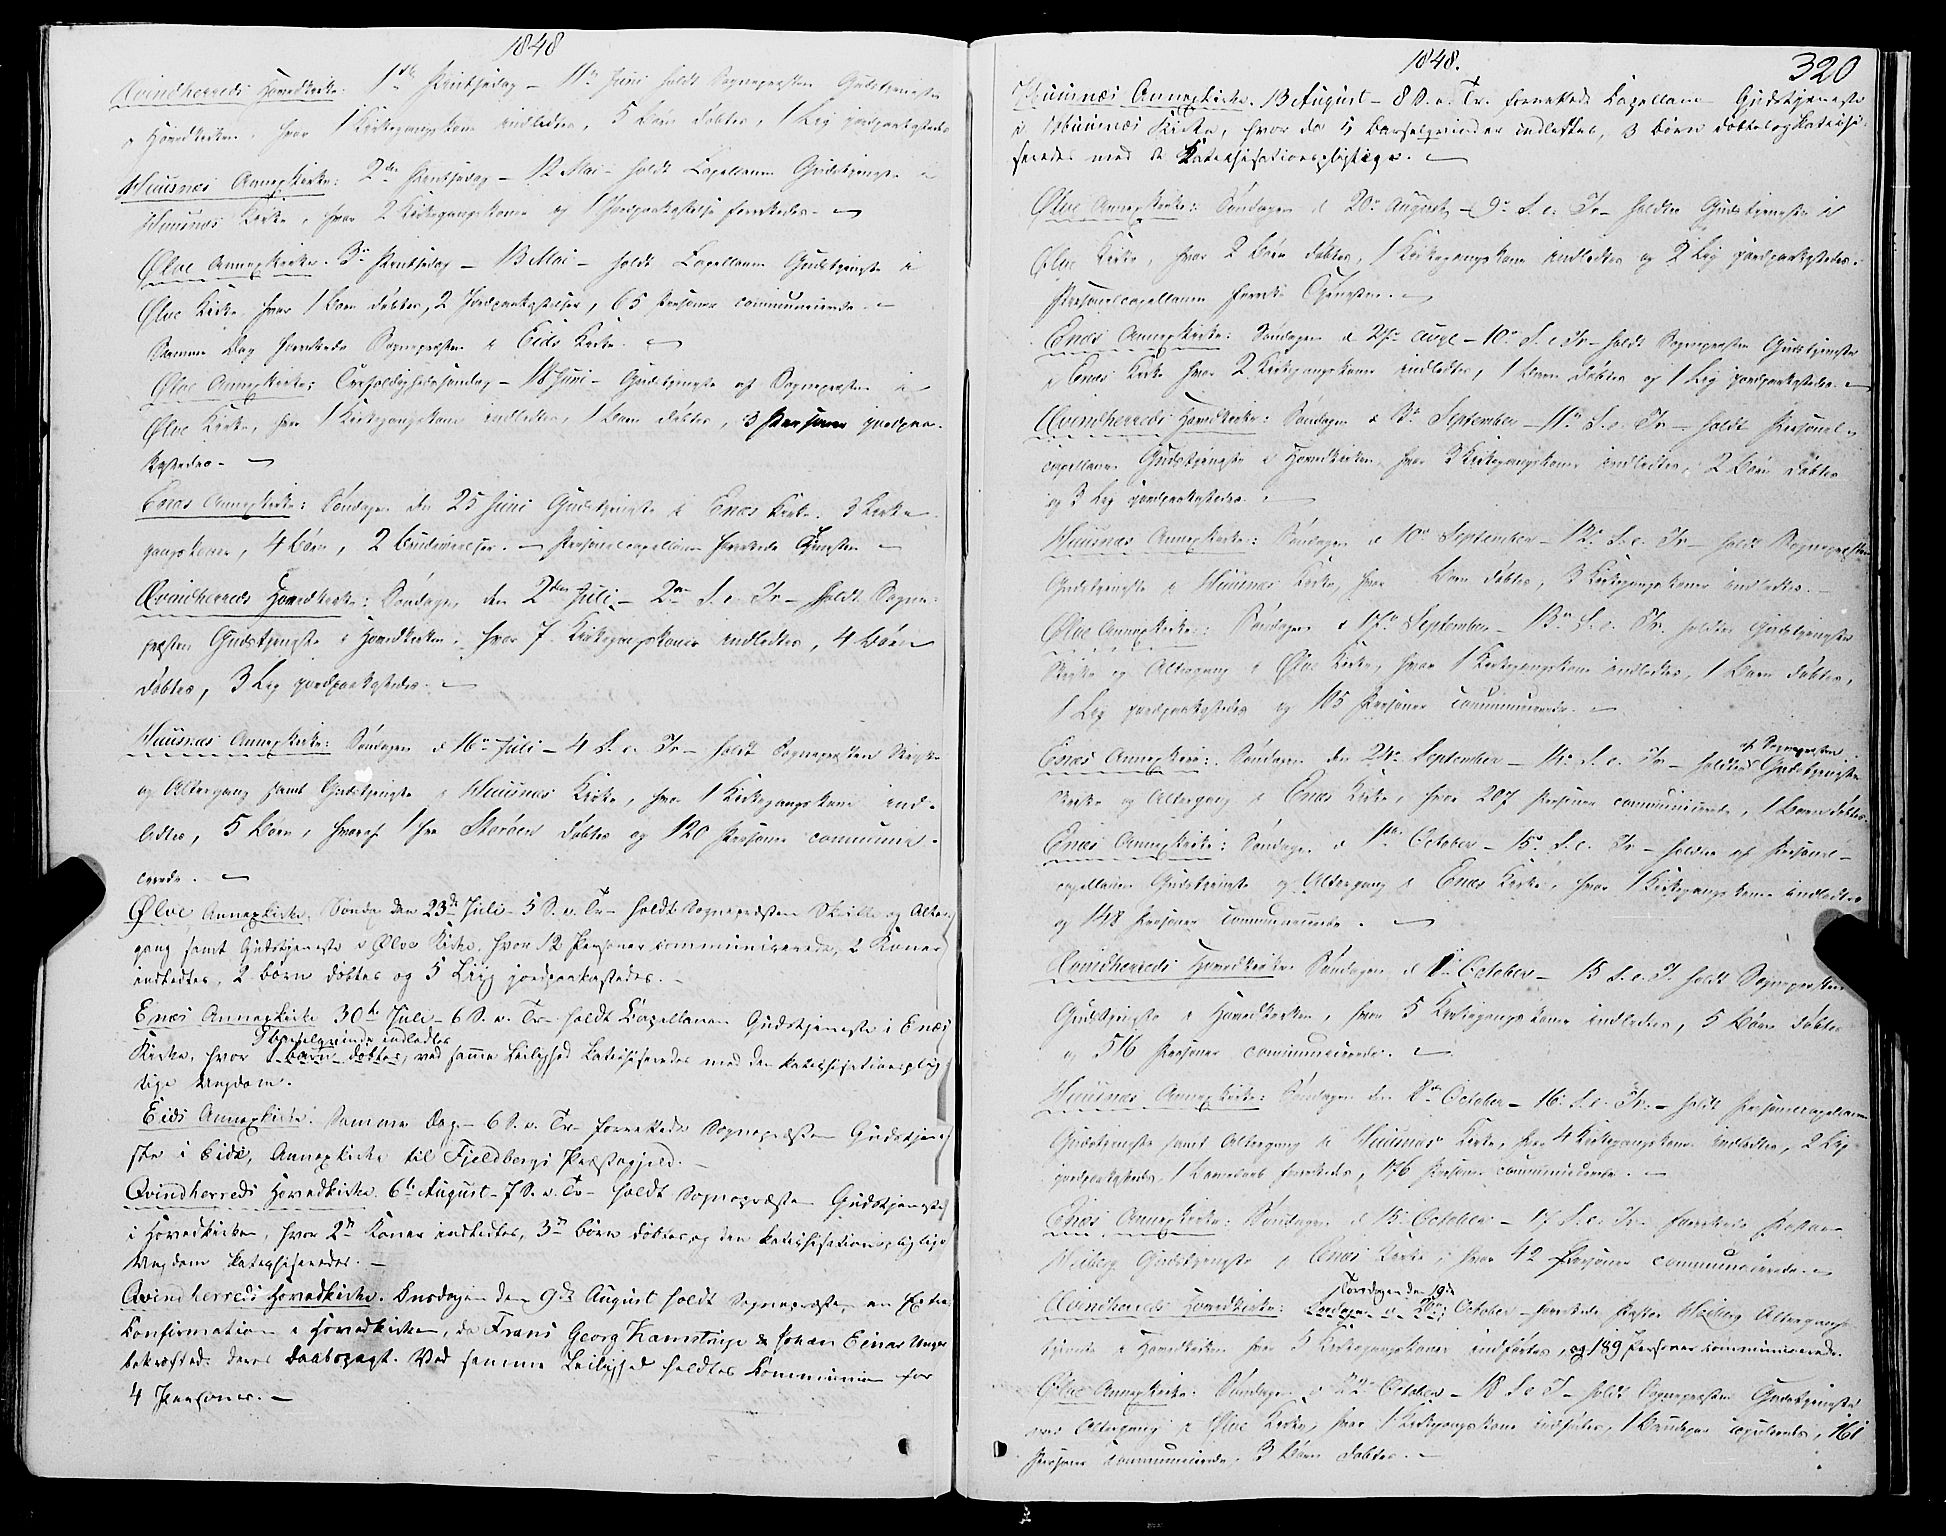 1848
Qvindherreds Hovedkirke: 1ste Pintsedag – 11te Juni holdt Sognepræsten Gudstjeneste
i Hovedkirken, hvor 1 Kirkegangskone indledtes, 5 Børn døbtes, 1 Lig jordpaakastedes
Huusnæs Annexkirke: 2den Pintsedag – 12 Mai – holdt Capellanen Gudstjeneste i
Huusnæs Kirke, hvor 2 Kirkegangskoner og 1 Jordpaakastelse forrettedes. –
Ølve Annexkirke. 3die Pintsedag – 13 Mai – holdt Capellanen Gudstjeneste i
Ølve Kirke, hvor 1 Barn døbtes, 2 Jordpaakastelser, 65 Personer communicerede. –
Samme Dag forrettede Sognepræsten i Eids Kirke. –
Ølve Annexkirke: Trefoldighedssøndag – 18 Juni – Gudstjeneste af Sognepræsten i
Ølve Kirke, hvor 1 Kirkegangskone indledtes, 1 Barn døbtes, 3 Personer jordpaa-
kastedes. –
Enæs Annexkirke: Søndagen den 25 Juni Gudstjeneste i Enæs Kirke. 3 Kirke-
gangskoner, 4 Børn, 2 Brudevielser. – Personelcapellanen forrettede Tjenesten –
Qvindherreds Hovedkirke: Søndagen den 2den Juli – 2den S. e. Tr – holdt Sogne-
præsten Gudstjeneste i Hovedkirken, hvor 7 Kirkegangskoner indledtes, 4 Børn
døbtes, 3 Lig jordpaakastedes. –
Huusnæs Annexkirke: Søndagen d 16de Juli – 4 S. e. Tr – holdt Sognepræsten Skrifte
og Altergang samt Gudstjeneste i Huusnæs Kirke, hvor 1 Kirkegangskone ind-
ledtes, 5 Børn, hvoraf 1 fra Storøen døbtes og 120 Personer communi-
cerede. –
Ølve Annexkirke. Søndag den 23de Juli – 5 S. e. Tr – holdt Sognepræsten Skrifte og Alter-
gang samt Gudstjeneste i Ølve Kirke, hvor 12 Personer communicerede, 2 Koner
indledtes, 2 børn døbtes og 5 Liig jordpaakastedes. –
Enæs Annexkirke 30te Juli – 6 S. e. Tr – holdt Capellanen Gudstjeneste i Enæs
1 barselqvinde indledtes
Kirke, hvor 1 barn døbtes, ved samme Leilighed Katechiseredes med den katechisationsplig-
tige Ungdom.
Eids Annexkirke. Samme Dag – 6 S. e. Tr – forrettede Sognepræsten Gudstjene-
ste i Eids, Annexkirke til Fjeldbergs Præstegjeld. –
Qvindherreds Hovedkirke. 6te August – 7 S. e. Tr – holdt Sognepræsten Gudstjeneste
i Hovedkirken, hvor 2de Koner indledtes, 3de børn døbtes, og den katechisationspligtige
Ungdom katechiseredes. –
Qvindherreds Hovedkirke. Onsdagen den 9de August holdt Sognepræsten en Extra
Confirmation i Hovedkirken, da Frans Georg Kamstrup & Johan Einar Unger
bekræftede deres Daabspagt. Ved samme Leilighed holdtes Communion for
4 Personer. –
1848.
320
Huusnæs Annexkirke. 13 August – 8 S. e. Tr. forrettede Capellanen Gudstjeneste
i Huusnæs Kirke, hvor da 5 barselqvinder indledtes, 3 børn døbtes og katechi-
seredes med de Katechisationspligtige. –
Ølve Annexkirke: Søndagen d 20de August – 9de S. e. Tr – holdtes Gudstjeneste i
Ølve Kirke, hvor 2 Børn døbtes, 1 Kirkegangskone indledtes og 2 Lig jordpaakastedes.
Personelcapellanen forrett. Tjenesten. –
Enæs Annexkirke: Søndagen d 27de Aug – 10de S. e Tr – holdt Sognepræsten Gudstjeneste
i Enæs Kirke hvor 2 Kirkegangskoner indledtes, 1 Barn døbtes og 1 Lig jordpaakastedes. –
Qvindherreds Hovedkirke: Søndagen d 3de September – 11te S. e. Tr – holdt Personel-
capellanen Gudstjeneste i Hovedkirken, hvor 3 Kirkegangskoner indledtes, 2 Børn døbtes
og 3 Lig jordpaakastedes. –
Huusnæs Annexkirke: Søndagen d 10de September – 12te S. e. Tr – holdt Sognepræsten
Gudstjeneste i Huusnæs Kirke, hvor Børn døbtes, 3 Kirkegangskoner indledtes. –
Ølve Annexkirke: Søndagen d 17de September – 13de S. e. Tr. holdtes Gudstjeneste
Skrifte og Altergang i Ølve Kirke, hvor 1 Kirkegangskone indledtes, 1 Barn døbtes,
1 Lig jordpaakastedes og 105 Personer communicerede. –
af Sognepræsten
Enæs Annexkirke: Søndagen den 24de September – 14de S. e. Tr – holdtes Gudstjeneste
Skrifte og Altergang i Enæs Kirke, hvor 207 Personer communicerede, 1 Barn døbtes.
Enæs Annexkirke: Søndagen d 1ste October – 15de S. e. Tr – holdtes af Personel-
capellanen Gudstjeneste og Altergang i Enæs Kirke, hvor 1 Kirkegangskone indledtes
og 148 Personer communicerede. –
Qvindherreds Hovedkirke Søndagen d 1ste October – 15 S. e. T. holdt Sognepræsten
Gudstjeneste i Hovedkirken, hvor 5 Kirkegangskoner indledtes, 5 Børn døbtes
og 516 Personer communicerede. –
Huusnæs Annexkirke: Søndagen den 8de October – 16de S. e. Tr. – holdt Personelcapellanen
Gudstjeneste samt Altergang i Huusnæs Kirke, hvor 4 Kirkegangskoner indledtes, 2 Lig
jordpaakastedes, 1 Barnedaab forrettedes, 176 Personer communicerede. –
Enæs Annexkirke: Søndagen d 15 October – 17 S. e. Tr. forrettede Pastor
Wiberg Gudstjeneste i Enæs Kirke, hvor 42 Personer communicerede. –
Torsdagen den 19de
Qvindherreds Hovedkirke: October – forrettede Pastor Wiberg Altergangs-
tjeneste i Hovedkirken hvor 5 Kirkegangskoner indførtes, og 189 Personer communicerede.
Ølve Annexkirke: Søndagen d 22de October – 18 S. e T – holdt Sognepræsten Gudstjeneste
med Altergang i Ølve Kirke, hvor 1 Kirkegangskone indførtes, 1 Brudepar copuleredes, 161
Personer communicerede. 3 Børn døbtes. –